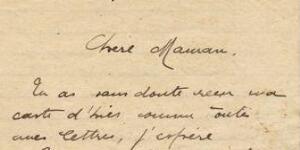 Chère Maman.
Tu as sans doute reçu ma
carte d'hier comme toutes
mes lettres, j'espère